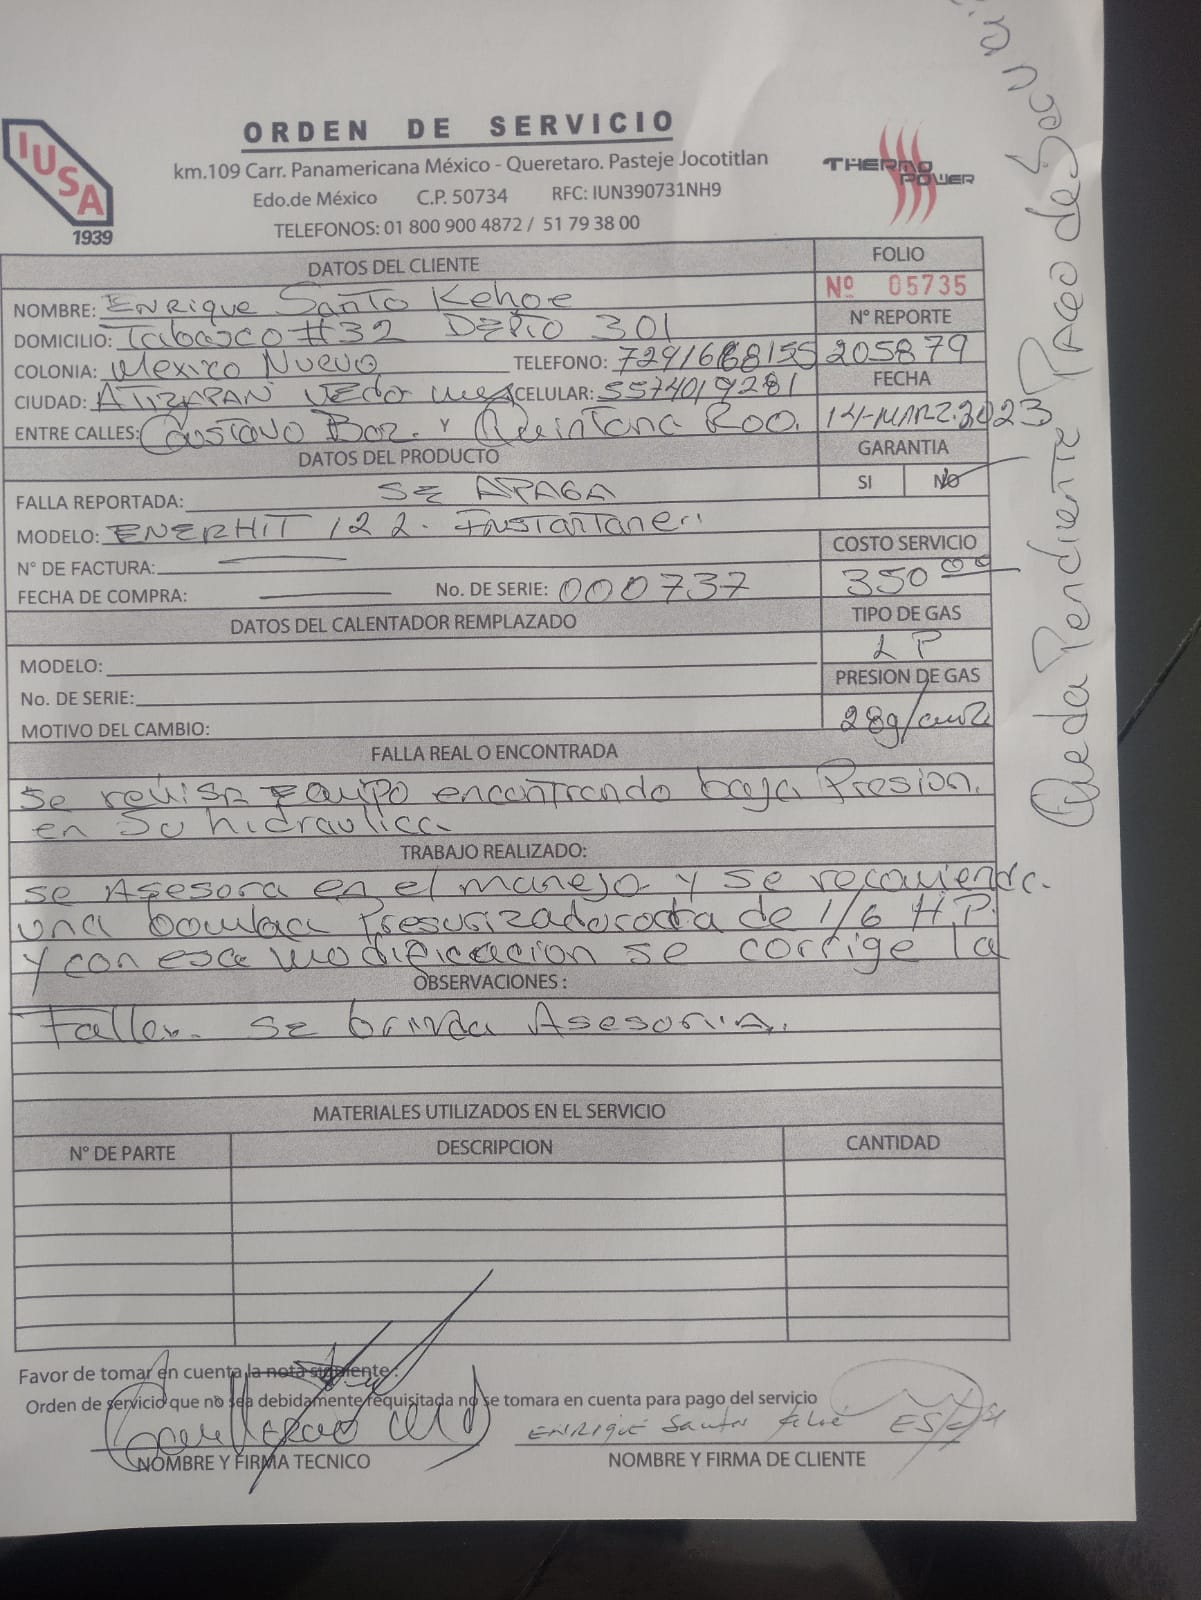 ORDEN DE SERVICIO
km.109 Carr. Panamericana México - Queretaro. Pasteje Jocotitlan
Edo.de México C.P. 50734 RFC: IUN390731NH9
TELEFONOS: 01 800 900 4872 / 51 79 38 00
IUSA
1939
THERMO
POWER
DATOS DEL CLIENTE
FOLIO
Nº 05735
NOMBRE: Enrique Santo Kehoe
Nº REPORTE
DOMICILIO: Tabasco #32 DEPTO 301
COLONIA: Mexico Nuevo TELEFONO: 7291668155 205879
FECHA
CIUDAD: ATIZAPAN CELULAR: 5574019281
ENTRE CALLES: Gustavo Baz. Y Quintana Roo. 14-MARZ.2023
DATOS DEL PRODUCTO
GARANTIA
SI NO
FALLA REPORTADA: SE APAGA
MODELO: ENERHIT 122. Instantaneo
COSTO SERVICIO
N° DE FACTURA:
350 00
FECHA DE COMPRA: No. DE SERIE: 000737
DATOS DEL CALENTADOR REMPLAZADO
TIPO DE GAS
LP
MODELO:
PRESION DE GAS
No. DE SERIE:
28g/cm2
MOTIVO DEL CAMBIO:
FALLA REAL O ENCONTRADA
Se revisa Equipo encontrando baja Presion.
en Su hidraulica
TRABAJO REALIZADO:
se Asesora en el manejo y se recomienda.
una bomba Presurizadora de 1/6 H.P.
y con esa modificacion se corrige la
OBSERVACIONES:
Falla. Se brinda Asesoria.
MATERIALES UTILIZADOS EN EL SERVICIO
N° DE PARTE DESCRIPCION CANTIDAD
Favor de tomar en cuenta la nota siguiente :
Orden de servicio que no sea debidamente requisitada no se tomara en cuenta para pago del servicio
ENRIQUE Santo
NOMBRE Y FIRMA TECNICO
NOMBRE Y FIRMA DE CLIENTE
Queda Pendiente Pago de